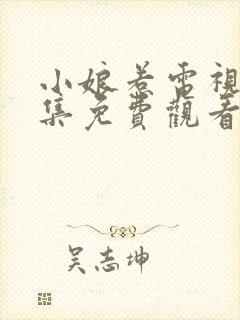 小娘惹電視
集免費觀看
吴志坤